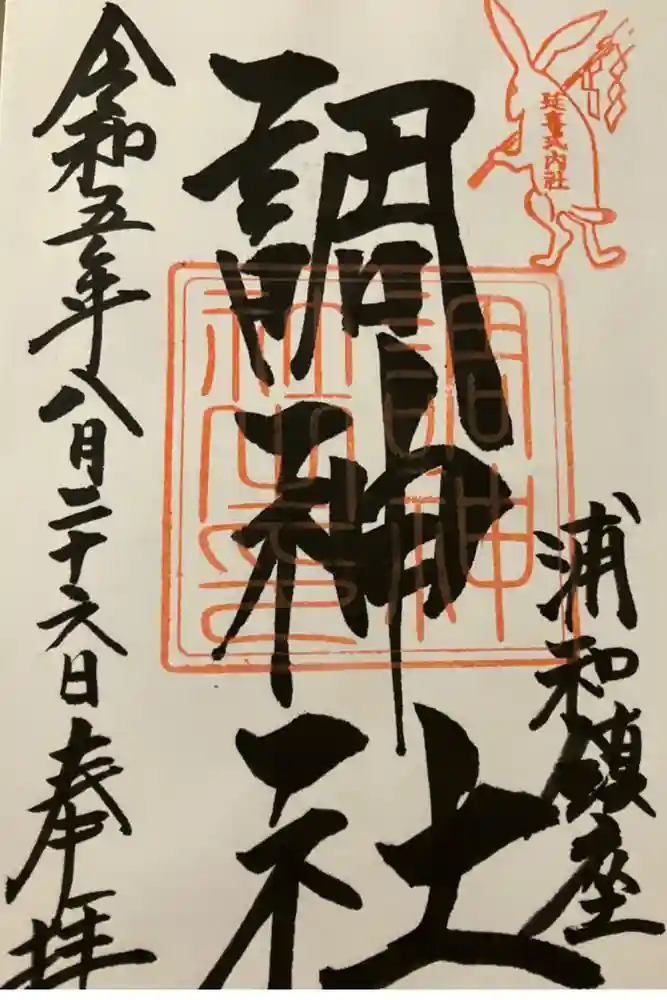 延喜式内社
浦和鎮座
調神社
調神
社之印
令和五年八月二十六日奉拝